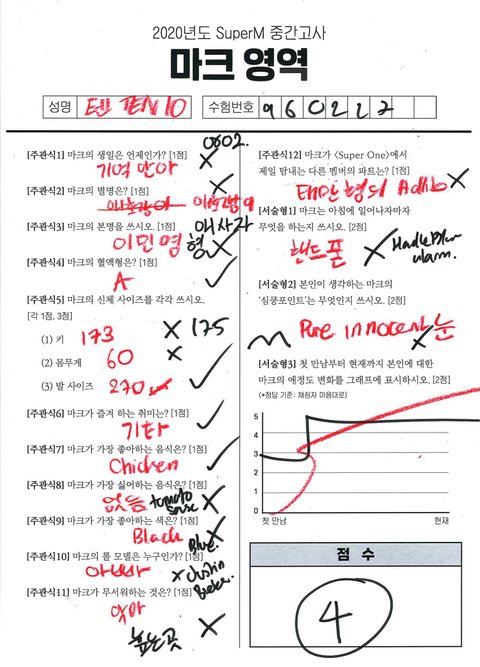 2020년도 SuperM 중간고사
마크 영역
성명 텐 TEN 10 수험번호 960227
[주관식1] 마크의 생일은 언제인가? [1점] 0802.
기억 안아
[주관식2] 마크의 별명은? [1점]
[주관식3] 마크의 본명을 쓰시오. [1점] 애 사자
이민영 형
[주관식4] 마크의 혈액형은? [1점]
A
[주관식5] 마크의 신체 사이즈를 각각 쓰시오.
[각 1점, 3점]
(1) 키 173 175
(2) 몸무게 60
(3) 발 사이즈 270
[주관식6] 마크가 즐겨 하는 취미는? [1점]
기타
[주관식7] 마크가 가장 좋아하는 음식은? [1점]
Chicken
[주관식8] 마크가 가장 싫어하는 음식은? [1점]
없음 tomato
[주관식9] 마크가 가장 좋아하는 색은? [1점]
Black Blue.
[주관식10] 마크의 롤 모델은 누구인가? [1점]
아빠 Justin
Bieber.
[주관식11] 마크가 무서워하는 것은? [1점]
엄마
높은 곳
[주관식12] 마크가 〈Super One〉에서
제일 탐내는 다른 멤버의 파트는? [1점]
태민 형의 Adlib
[서술형1] 마크는 아침에 일어나자마자
무엇을 하는지 쓰시오. [2점]
핸드폰
alarm.
[서술형2] 본인이 생각하는 마크의
'심쿵포인트'는 무엇인지 쓰시오. [2점]
Pure innocent 눈
[서술형3] 첫 만남부터 현재까지 본인에 대한
마크의 애정도 변화를 그래프에 표시하시오. [2점]
(*정답 기준: 채점자 마음대로)
5
4
3
2
1
0
첫 만남 현재
점 수
4